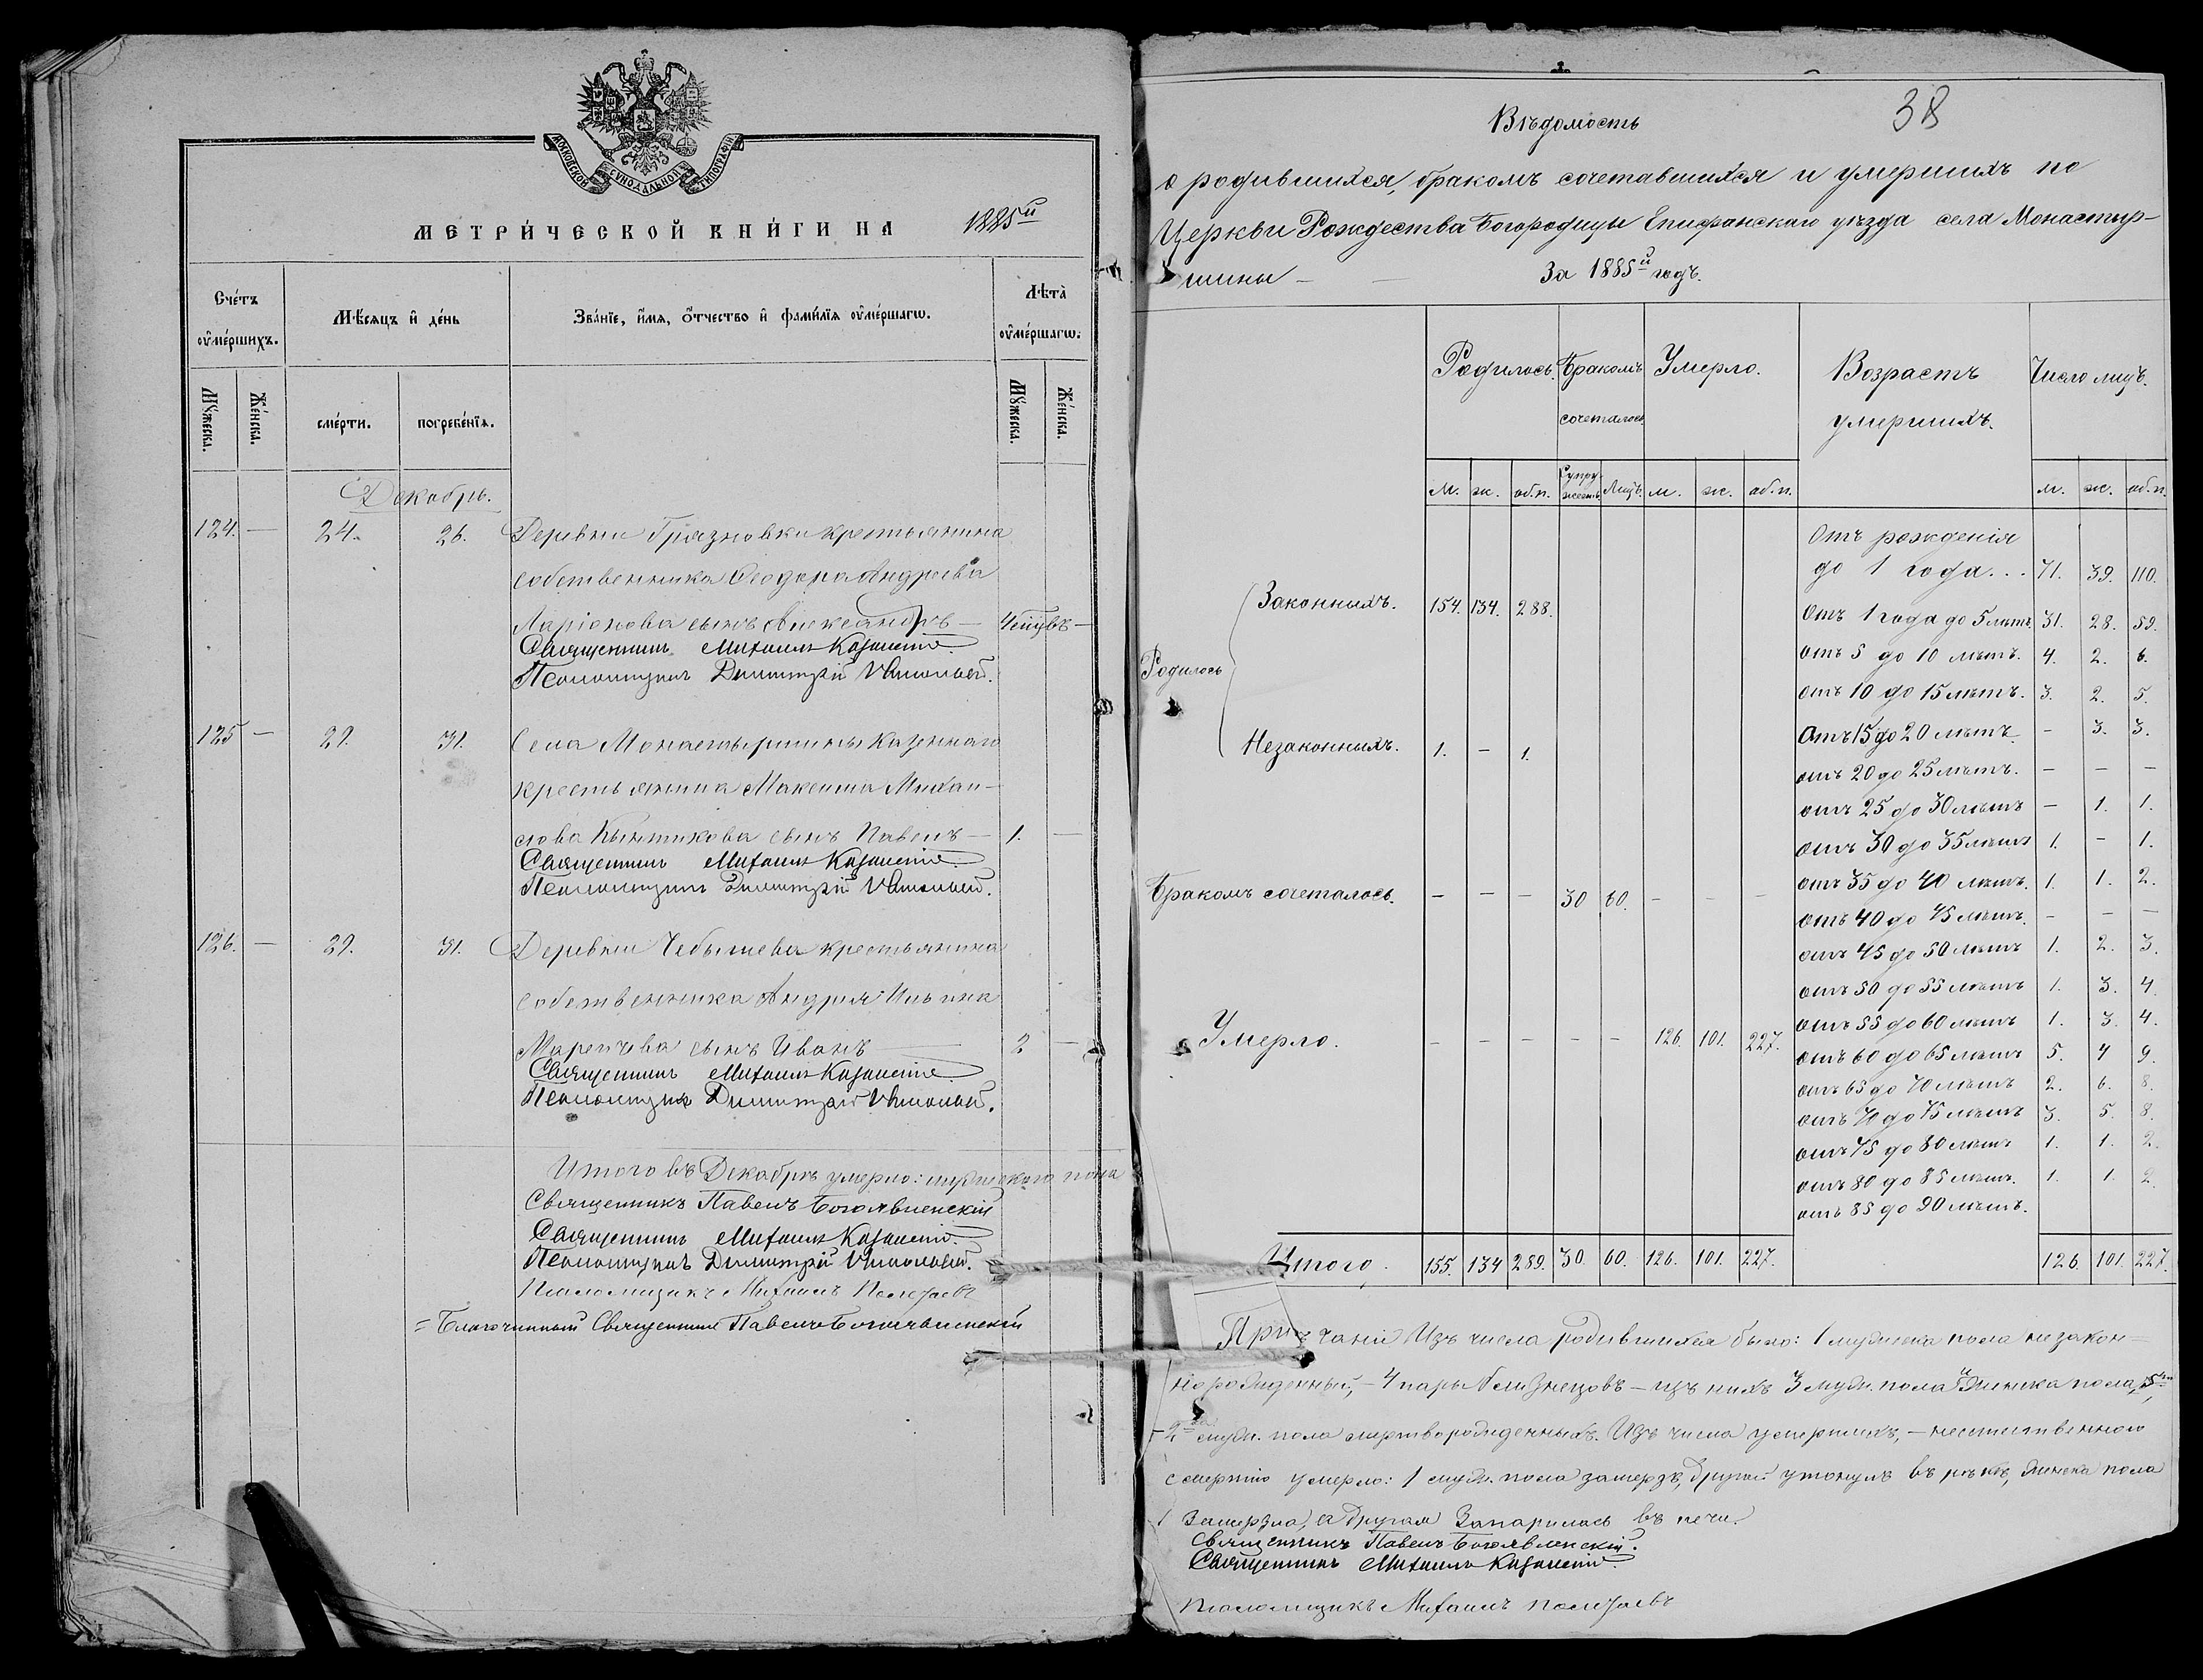 МОСКОВСКОЙ СѴНОДАЛЬНОЙ ТИПОГРАФІИ
МЕТРИ́ЧЕСКОЙ КНИ́ГИ НА 1885й
Сче́тъ ᲂу҆ме́ршихъ.
Мѣ́сяцъ и҆ де́нь
Зва́нїе, и҆́мѧ, ѻ҆́тчество и҆ фами́лїѧ ᲂу҆ме́ршагѡ.
Лѣ́та ᲂу҆ме́ршагѡ.
Мꙋ́жеска.
Же́нска.
сме́рти.
погребе́нїѧ.
Мꙋ́жеска.
Же́нска.
Декабрь.
124. — 24. 26. Деревни Грязновки крестьянина
собственника Ѳеодора Андреева
Ларіонова сынъ Александръ —
Священникъ Михаилъ Казанскій
Псаломщикъ Димитрій
125 — 29. 31. Села Монастырщины казеннаго
крестьянина Максима Михаи-
лова сынъ Павелъ — 1. —
Священникъ Михаилъ Казанскій
Псаломщикъ Димитрій
126. — 29. 31. Деревни Чебышева крестьянина
собственника Андрея Ильина
сынъ Иванъ — 2 —
Священникъ Михаилъ Казанскій
Псаломщикъ Димитрій
Итого въ Декабрѣ умерло: мужескаго пола
Священникъ Павелъ Богоявленскій
Священникъ Михаилъ Казанскій
Псаломщикъ Димитрій
Псаломщикъ Михаилъ Полетаевъ
= Благочинный Священникъ Павелъ Богоявленскій
38
Вѣдомость
о родившихся, бракомъ сочетавшихся и умершихъ по
Церкви Рождества Богородицы Епифанскаго уѣзда села Монастыр-
щины — За 1885й годъ.
Родилось. Бракомъ сочеталось. Умерло. Возрастъ умершихъ. Число лицъ.
м. ж. об.п. Супружествъ Лицъ. м. ж. об.п. м. ж. об.п.
Отъ рожденія
до 1 года... 71. 39. 110.
Родилось
Законныхъ. 154. 134. 288.
Отъ 1 года до 5 лѣтъ 31. 28. 59.
отъ 5 до 10 лѣтъ. 4. 2. 6.
отъ 10 до 15 лѣтъ. 3. 2. 5.
Незаконныхъ. 1. — 1.
Отъ 15 до 20 лѣтъ — 3. 3.
отъ 20 до 25 лѣтъ. — — —
отъ 25 до 30 лѣтъ — 1. 1.
отъ 30 до 35 лѣтъ 1. — 1.
отъ 35 до 40 лѣтъ. 1. 1. 2.
Бракомъ сочеталось. — — — 30 60. — — —
отъ 40 до 45 лѣтъ. — — —
отъ 45 до 50 лѣтъ 1. 2. 3.
отъ 50 до 55 лѣтъ 1. 3. 4.
отъ 55 до 60 лѣтъ 1. 3. 4.
Умерло. — — — — — 126. 101. 227.
отъ 60 до 65 лѣтъ 5. 4 9.
отъ 65 до 70 лѣтъ 2. 6. 8.
отъ 70 до 75 лѣтъ 3. 5. 8.
отъ 75 до 80 лѣтъ 1. 1. 2.
отъ 80 до 85 лѣтъ. 1. 1. 2
отъ 85 до 90 лѣтъ.
Итого. 155. 134 289. 30. 60. 126. 101. 227. 126. 101. 227.
При чаніе Изъ числа родившихся было: 1 мужеска пола незакон=
норожденный, — 4 пары близнецовъ — изъ нихъ 3 муж. пола и женска пола, 5
— 2 муж. пола мертворожденныхъ. Изъ числа умершихъ, — неестественною
смертію умерло: 1 муж. пола замерзъ, другой утонулъ въ рѣкѣ, женска пола
1 замерзла, а другая запарилась въ печи.
Священникъ Павелъ Богоявленскій.
Священникъ Михаилъ Казанскій
Псаломщикъ Михаилъ Полетаевъ